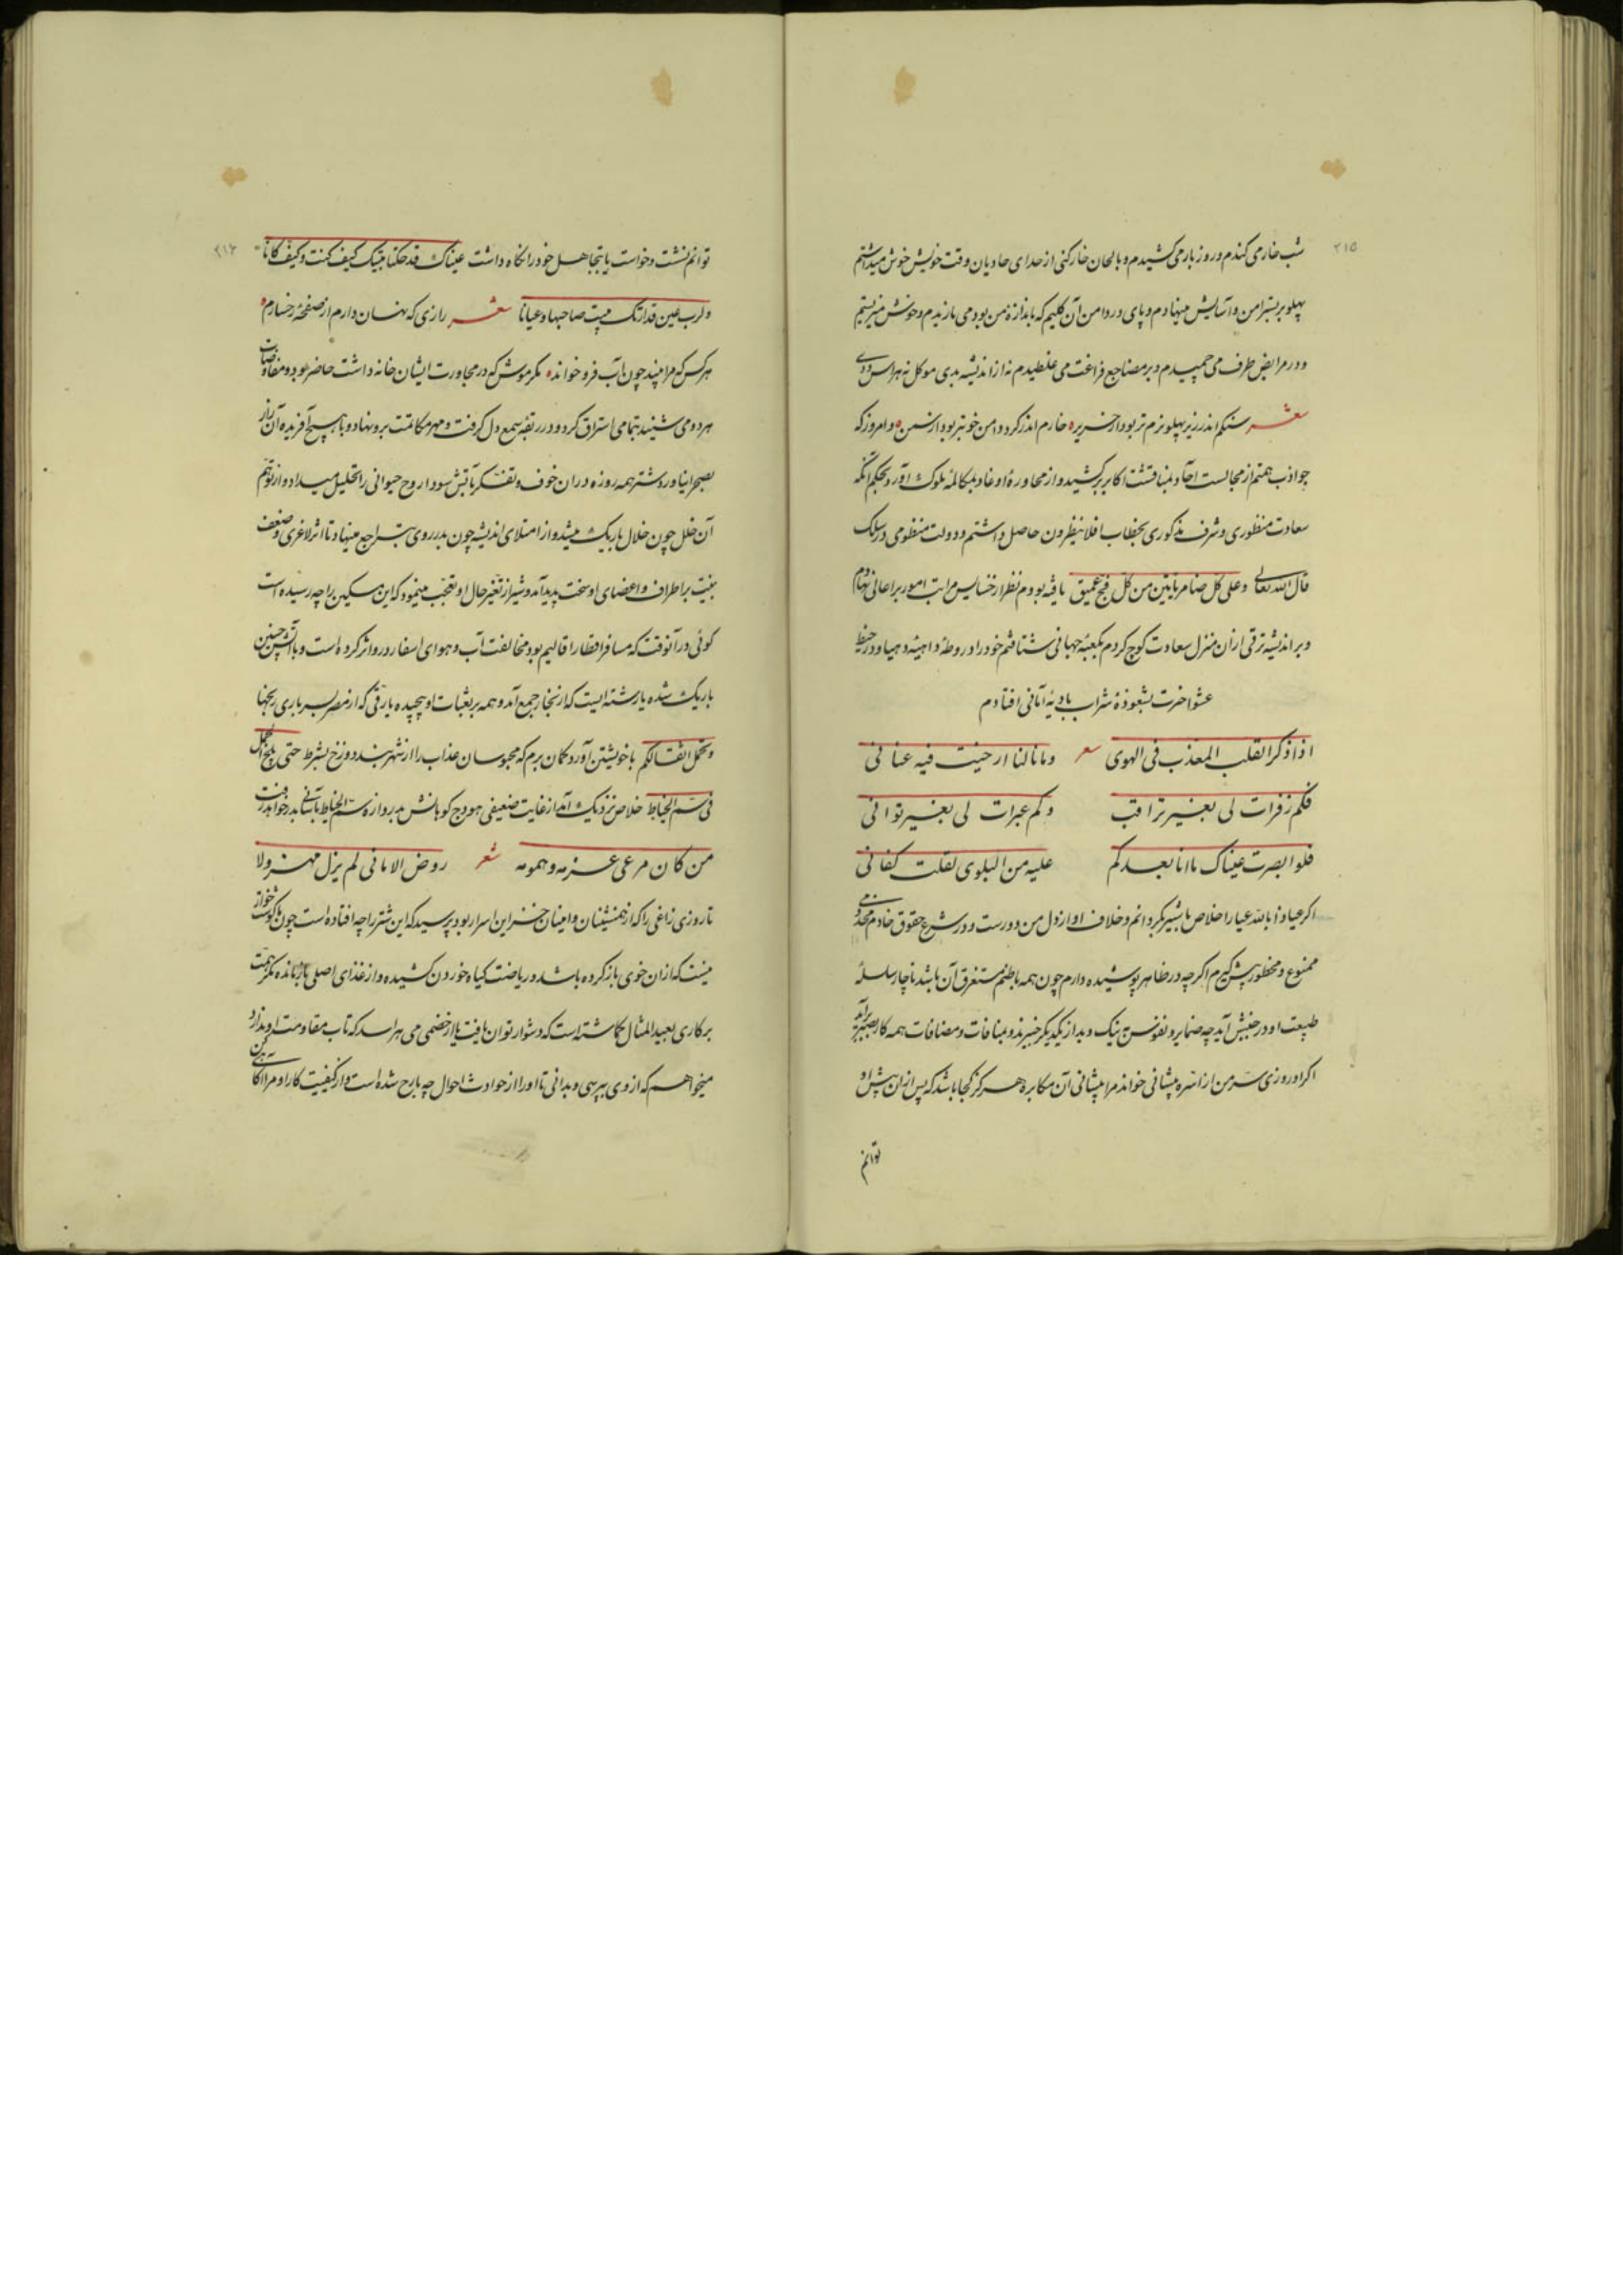 ۲۱۵
شب خار می کندم و روز بار می کشیدم و بالحان خارکنی از حدای حادیان وقت خویش خوش میداشتم
پهلو بر بستر امن و آسایش مینهادم و پای در دامن آن گلیم که باندازهٔ من بود می یازیدم و خوش میزیستم
و در مرابض طرف می چمیدم و بر مضاجع فراغت می غلطیدم نه از اندیشه بدی موکل نه هراس ددی
شعر سنکم اندر زیر پهلو نرم تر بود از حریر خارم اندر کرد دامن خوبتر بود از سمن و امروز که
جواذب همتم از مجالست آحاد بمنافثت اکابر برکشید و از محاورهٔ اوغاد بمکالمهٔ ملوک آورد بحکم آنکه
سعادت منظوری و شرف مذکوری بخطاب افلا ینظرون حاصل داشتم و دولت منظومی در سلک
قال الله تعالی و علی کل ضامر یأتین من کل فج عمیق یافته بودم نظر از خسایس مراتب امور بر اعالی نهادم
و بر اندیشه ترقی ازان منزل سعادت کوچ کردم بکعبهٔ جهانی شتافتم خود را در ورطهٔ داهیهٔ دهیا و در خبط
عشوا خرت بشعوذهٔ شراب بادیهٔ آمانی افتادم
اذا ذکر القلب المعذب فی الهوی شعر و ما نالنا ارخیت فیه عنانی
فکم زفرات لی بغیر تراقب و کم عبرات لی بغیر توانی
فلو ابصرت عیناک ما انا بعدکم علیه من البلوی لقلت کفانی
اکر عیاذا بالله عیار اخلاص با شیر بگردانم و خلاف او از دل من دورست و در شرع حقوق خادم مخدومی
ممنوع و محظور پیش گیرم اکرچه در ظاهر پوشیده دارم چون همه باطنم مستغرق آن باشد ناچار سلسلهٔ
طبیعت او در جنبش آید چه ضمایر و نفوس نیک و بد از یکدیگر خبیرند و بمنافات و مصافات همه کار بصیر برآید
اکر او روزی سر من از اسرهٔ پیشانی خواند مرا پیشانی آن مکابره هرکز کجا باشد که پس ازان پیش او
توانم
۲۱۶
توانم نشست و خواست یا بتجاهل خود را نکاه داشت عیناک قد حکتا مبیتک کیف کنت و کیف کانا
و لرب عین قد ارتک مبیت صاحبها و عیانا شعر رازی که نهان دارم از صفحهٔ رخسارم
هرکس که مرا بیند چون آب فرو خواند مکر موش که در مجاورت ایشان خانه داشت حاضر بود و مفاوضات
هر دو می شنید بتمامی استراق کرد و در ربقهٔ سمع دل گرفت و مهر مکالمت برو نهاد و با هیچ آفریده آن راز
بصحرا نیاورد شتر همه روزه دران خوف و تفکر بآتش سودا روح حیوانی را تحلیل میداد و از توهم
آن خلل چون خلال باریک میشد و از امتلای اندیشه چون بدر روی بتراجع مینهاد تا اثر لاغری و ضعف
بنیت بر اطراف و اعضای او سخت پدید آمد و شیر از تغیر حال او تعجب مینمود که این مسکین را چه رسیده است
کوئی درآنوقت که مسافر اقطار اقالیم بود مخالفت آب و هوای اسفار درو اثر کرده است و بدان سبب چنین
باریک شده یا رشته ایست که از نخار جمع آمد و همه بر بغبات او پیچیده یا رقی که از مصر بسر باری رنجها
و تحمل اثقالکم با خویشتن آورد کمان برم که محبوسان عذاب را از شهر بند دوزخ بشرط حتی یلج الجمل
فی سم الخیاط خلاص نزدیک آمد از غایت ضعیفی هودج کوهانش بدروازهٔ سم الخیاط بآسانی بدر خواهد رفت
من کان مرعی عزمه و همومه شعر روض الامانی لم یزل مهزولا
تا روزی زاغی را که از همنشینان و امینان خزاین اسرار بود پرسید که این شتر را چه افتاده است چون ما گوشت خوار
نیست که ازان خوی باز کرده باشد و ریاضت کیاه خوردن کشیده و از غذای اصلی باز مانده مکر همت
بر کاری بعید المثال کماشته است که دشوار توان یافت یا از خصمی می هراسد که تاب مقاومت او ندارد
میخواهم که از وی بپرسی و بدانی تا او را از حوادث احوال چه بارح شده است و از کیفیت کار او مرا اکاهی کن